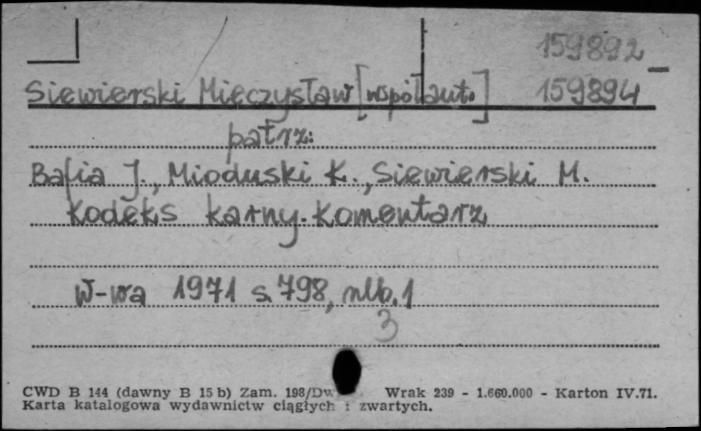 159892-
Siewierski Mieczysław [współaut.] 159894
patrz:
Bafia J., Mioduski K., Siewierski M.
Kodeks karny. Komentarz
W-wa 1971 s. 798, nlb. 1
3
CWD B 144 (dawny B 15 b) Zam. 198/Dw Wrak 239 - 1.660.000 - Karton IV.71.
Karta katalogowa wydawnictw ciągłych i zwartych.